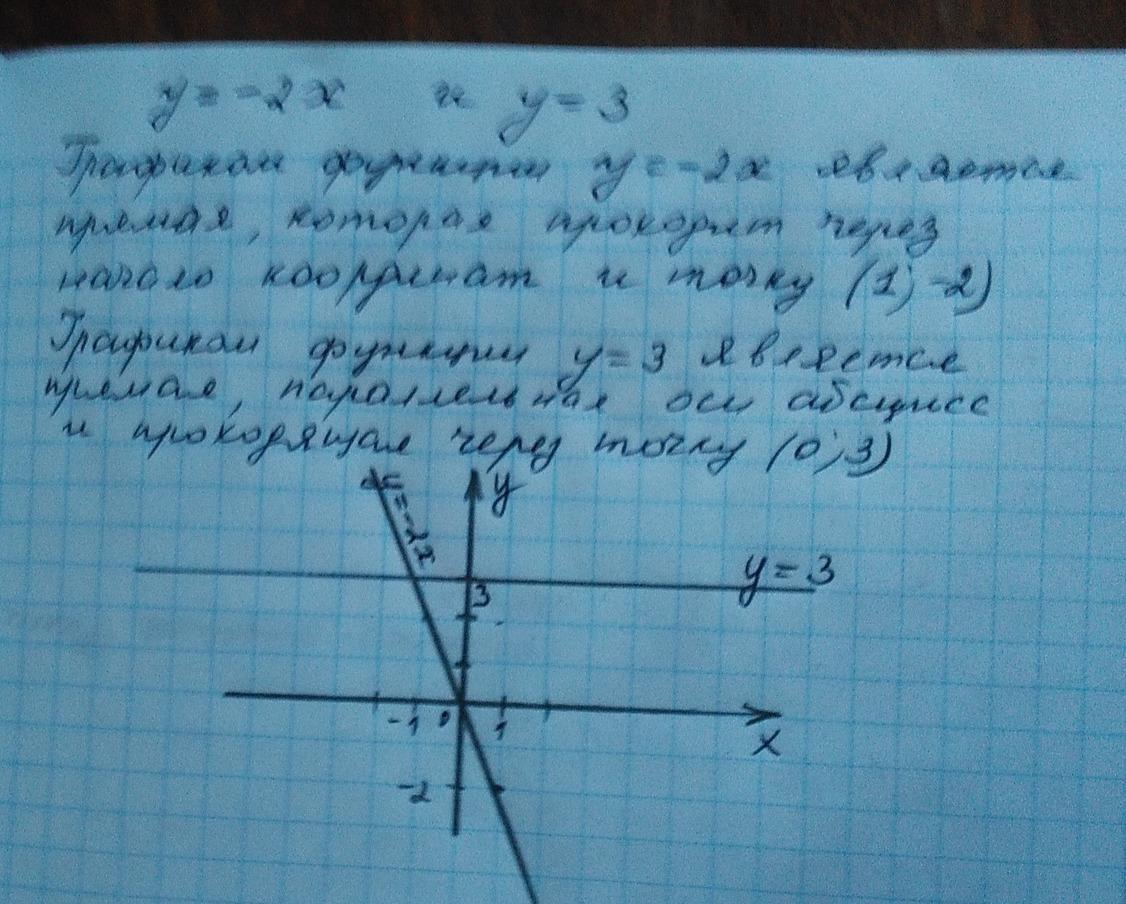 y = -2x и y = 3
Графиком функции y = -2x является
прямая, которая проходит через
начало координат и точку (1; -2)
Графиком функции y = 3 является
прямая, параллельная оси абсцисс
и проходящая через точку (0; 3)
y
y = -2x
y = 3
3
-1 0 1
x
-2